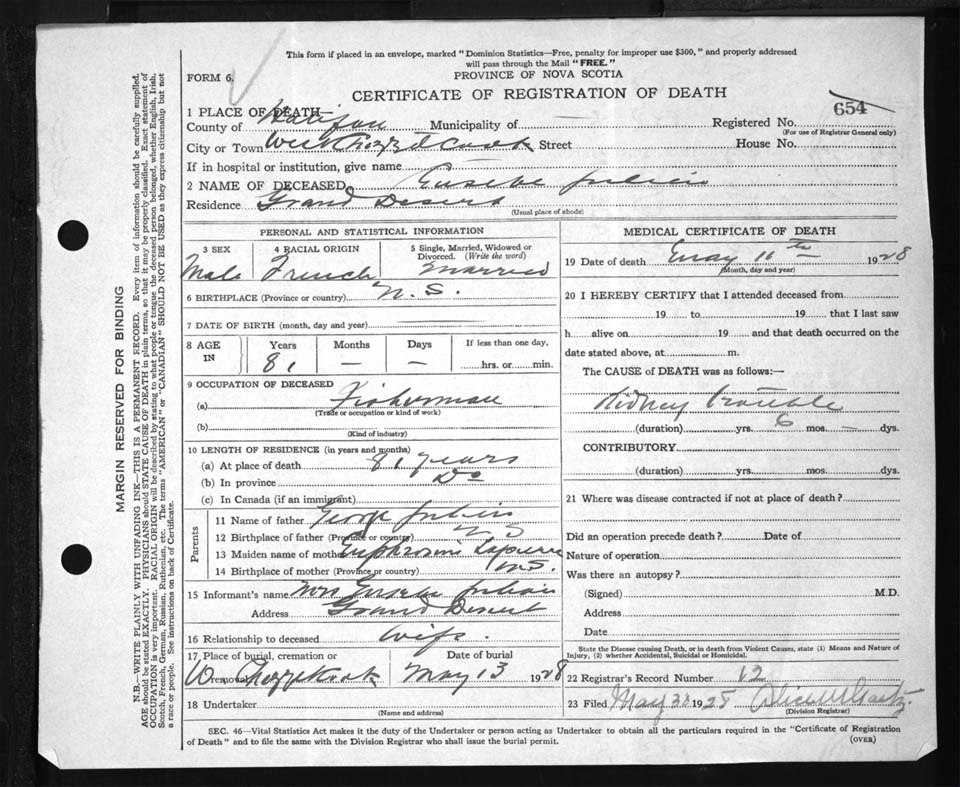 This form if placed in an envelope, marked "Dominion Statistics—Free, penalty for improper use $300," and properly addressed
will pass through the Mail "FREE."
FORM 6.
PROVINCE OF NOVA SCOTIA
CERTIFICATE OF REGISTRATION OF DEATH
1 PLACE OF DEATH
County of Halifax Municipality of Registered No. 654
(For use of Registrar General only)
City or Town West Chezzetcook Street House No.
If in hospital or institution, give name
2 NAME OF DECEASED Eusebe Julien
Residence Grand Desert
(Usual place of abode)
PERSONAL AND STATISTICAL INFORMATION
3 SEX 4 RACIAL ORIGIN 5 Single, Married, Widowed or
Divorced. (Write the word)
Male French Married
6 BIRTHPLACE (Province or country) N.S.
7 DATE OF BIRTH (month, day and year)
8 AGE IN Years Months Days If less than one day,
81 — — hrs. or min.
9 OCCUPATION OF DECEASED
(a) Fisherman
(Trade or occupation or kind of work)
(b)
(Kind of industry)
10 LENGTH OF RESIDENCE (in years and months)
(a) At place of death 81 years
(b) In province Do
(c) In Canada (if an immigrant)
Parents
11 Name of father George Julien
12 Birthplace of father (Province or country) N S
13 Maiden name of mother Lapierre
14 Birthplace of mother (Province or country) N.S.
15 Informant's name Mrs Eusebe Julien
Address Grand Desert
16 Relationship to deceased Wife.
17 Place of burial, cremation or removal Date of burial
W. Chezzetcook May 13 1928
18 Undertaker
(Name and address)
MEDICAL CERTIFICATE OF DEATH
19 Date of death May 11th 1928
(Month, day and year)
20 I HEREBY CERTIFY that I attended deceased from
19 to 19 that I last saw
h alive on 19 and that death occurred on the
date stated above, at m.
The CAUSE of DEATH was as follows:—
Kidney trouble
(duration) yrs. 6 mos. — dys.
CONTRIBUTORY.
(duration) yrs. mos. dys.
21 Where was disease contracted if not at place of death?
Did an operation precede death? Date of
Nature of operation
Was there an autopsy?
(Signed) M.D.
Address
Date
State the Disease causing Death, or in death from Violent Causes, state (1) Means and Nature of
Injury, (2) whether Accidental, Suicidal or Homicidal.
22 Registrar's Record Number 12
23 Filed May 1928
(Division Registrar)
SEC. 46—Vital Statistics Act makes it the duty of the Undertaker or person acting as Undertaker to obtain all the particulars required in the "Certificate of Registration
of Death" and to file the same with the Division Registrar who shall issue the burial permit.
(OVER)
MARGIN RESERVED FOR BINDING
N.B.—WRITE PLAINLY WITH UNFADING INK—THIS IS A PERMANENT RECORD. Every item of information should be carefully supplied.
AGE should be stated EXACTLY. PHYSICIANS should STATE CAUSE OF DEATH in plain terms, so that it may be properly classified. Exact statement of
OCCUPATION is very important. RACIAL ORIGIN will be described by stating to what people or tongue the deceased person belonged, whether English, Irish,
Scotch, French, German, Russian, Ruthenian, etc. The terms "AMERICAN" or "CANADIAN" SHOULD NOT BE USED as they express citizenship but not
a race or people. See instructions on back of Certificate.